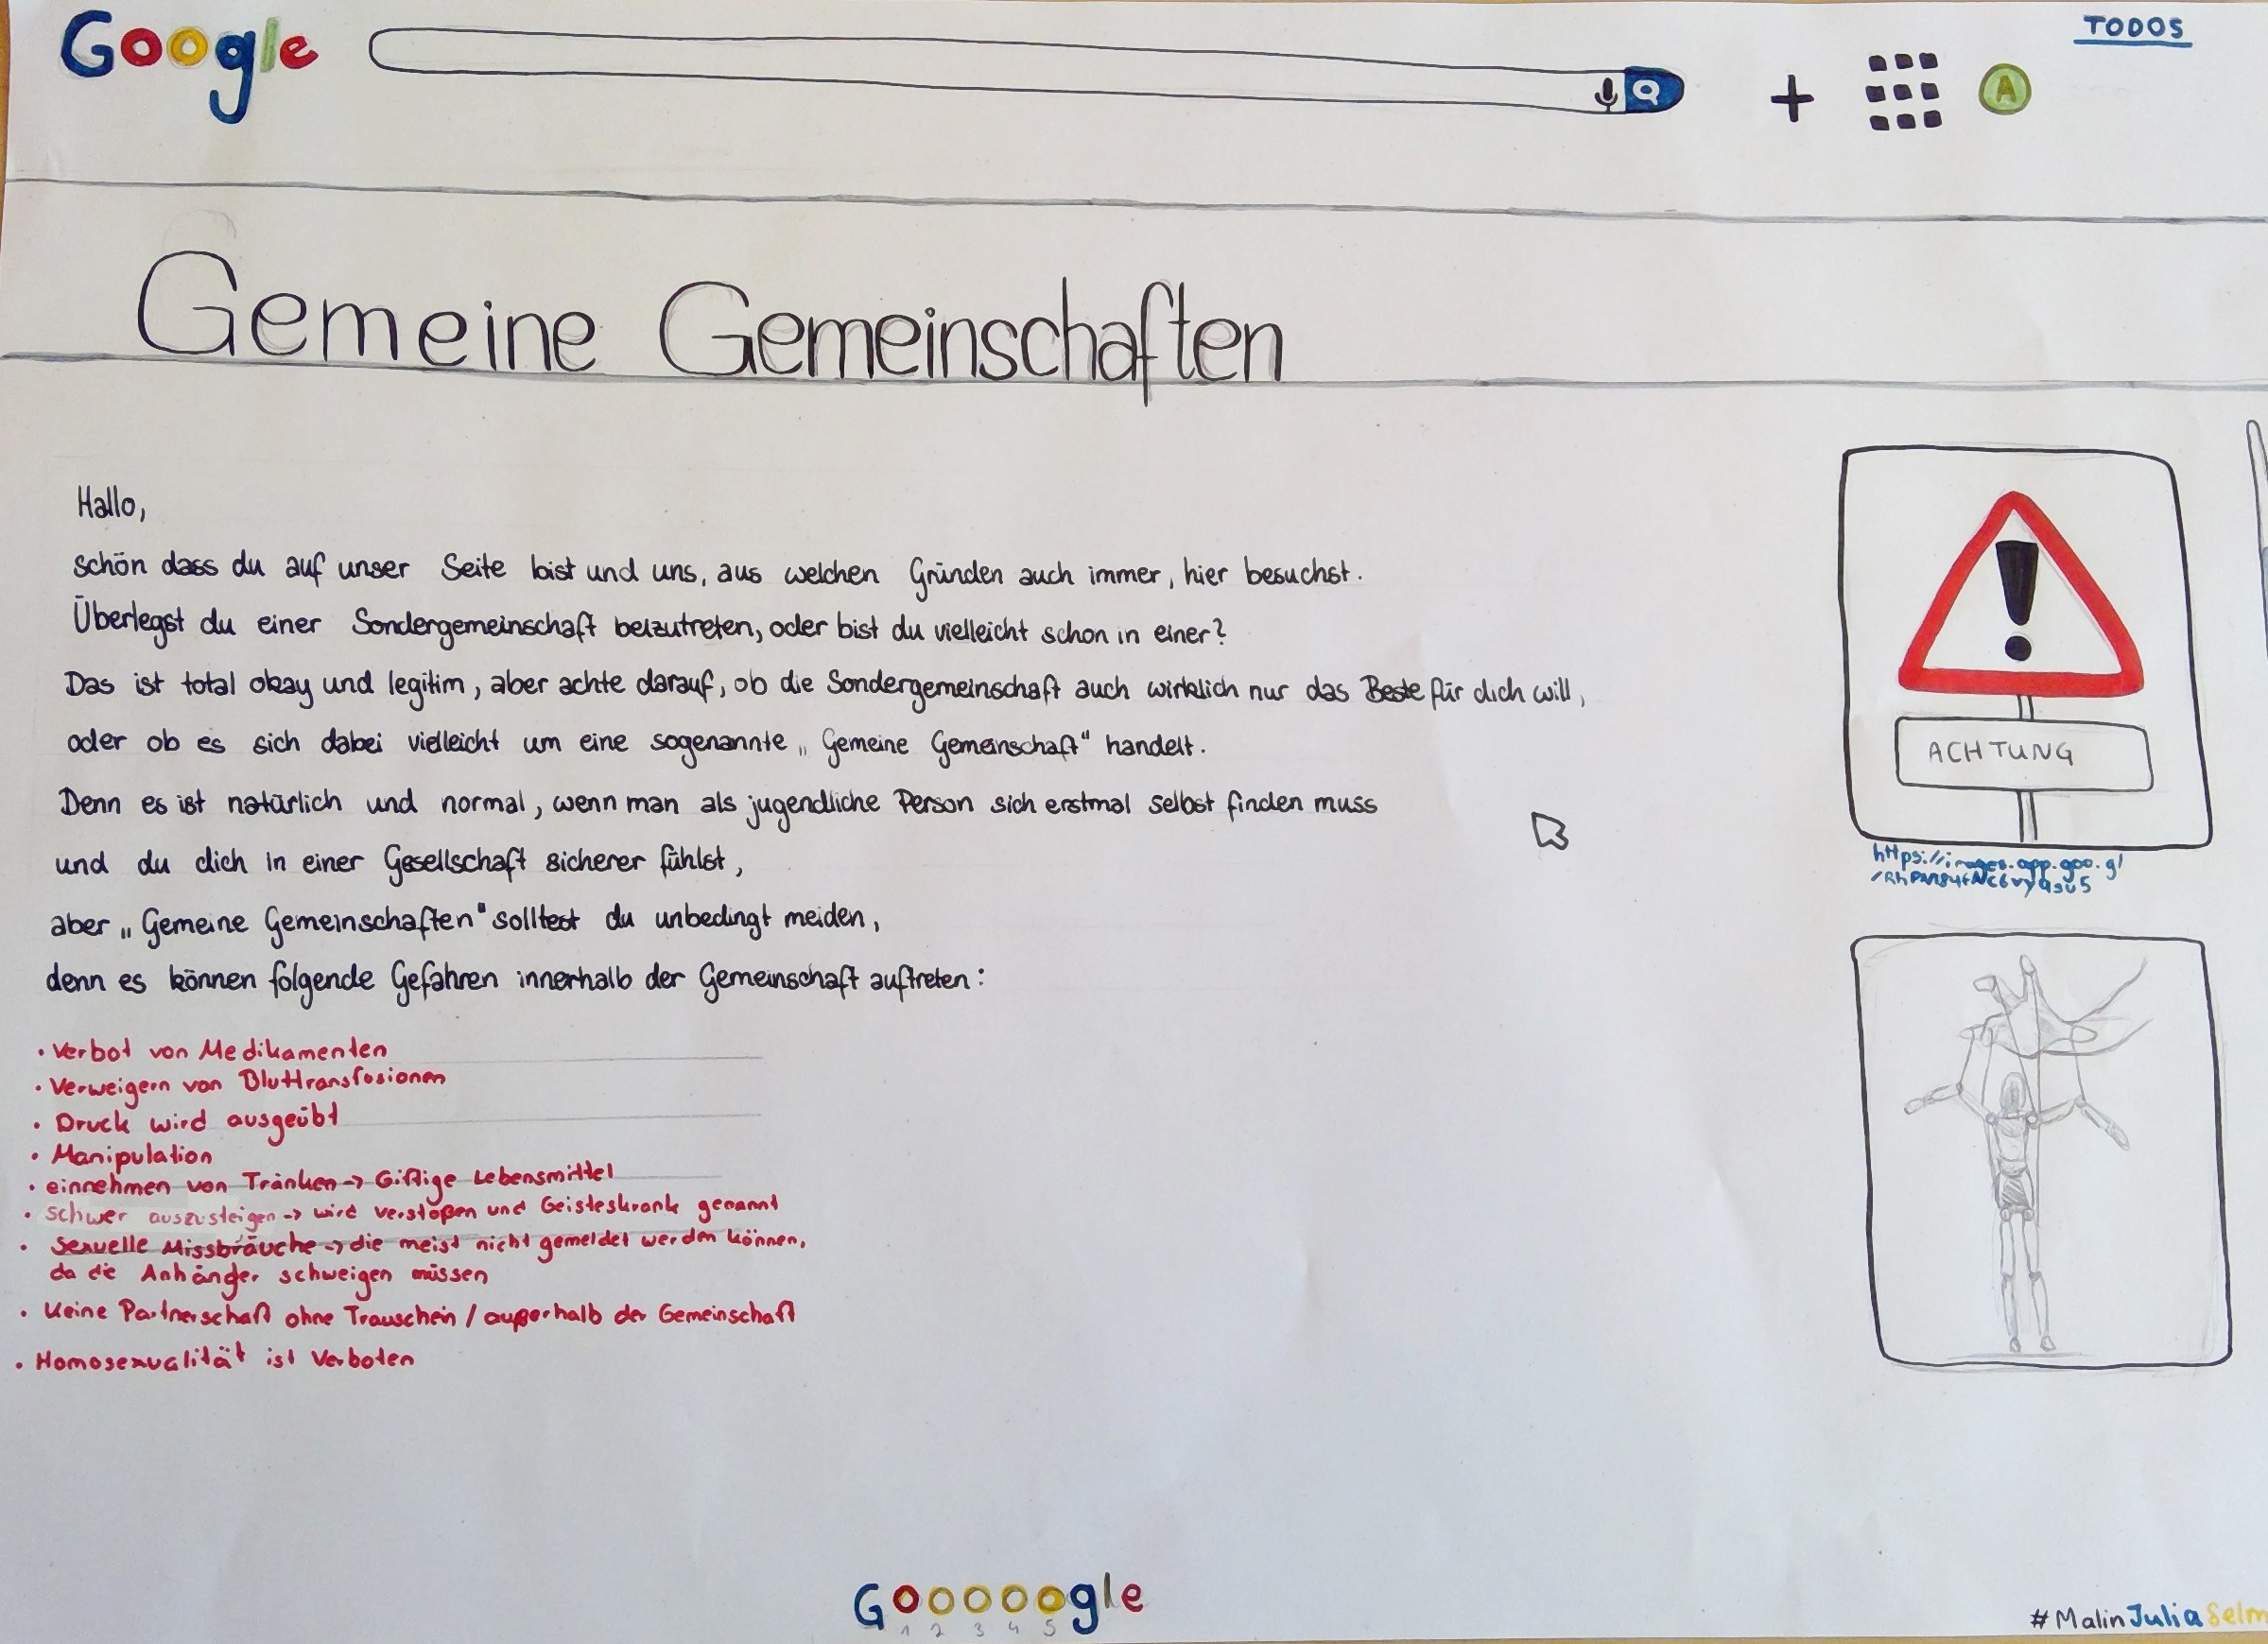 Google
TODOS
A
Gemeine Gemeinschaften
Hallo,
schön dass du auf unser Seite bist und uns, aus welchen Gründen auch immer, hier besuchst.
Überlegst du einer Sondergemeinschaft beizutreten, oder bist du vielleicht schon in einer?
Das ist total okay und legitim, aber achte darauf, ob die Sondergemeinschaft auch wirklich nur das Beste für dich will,
oder ob es sich dabei vielleicht um eine sogenannte „Gemeine Gemeinschaft" handelt.
Denn es ist natürlich und normal, wenn man als jugendliche Person sich erstmal selbst finden muss
und du dich in einer Gesellschaft sicherer fühlst,
aber „Gemeine Gemeinschaften" solltest du unbedingt meiden,
denn es können folgende Gefahren innerhalb der Gemeinschaft auftreten:
• Verbot von Medikamenten
• Verweigern von Bluttransfusionen
• Druck wird ausgeübt
• Manipulation
• einnehmen von Tränken -> Giftige Lebensmittel
• schwer auszusteigen -> wird verstoßen und Geisteskrank genannt
• Sexuelle Missbräuche -> die meist nicht gemeldet werden können,
da die Anhänger schweigen müssen
• Keine Partnerschaft ohne Trauschein / außerhalb der Gemeinschaft
• Homosexualität ist Verboten
ACHTUNG
https://images.app.goo.gl
Goooooogle
1 2 3 4 5
#MalinJuliaSelm